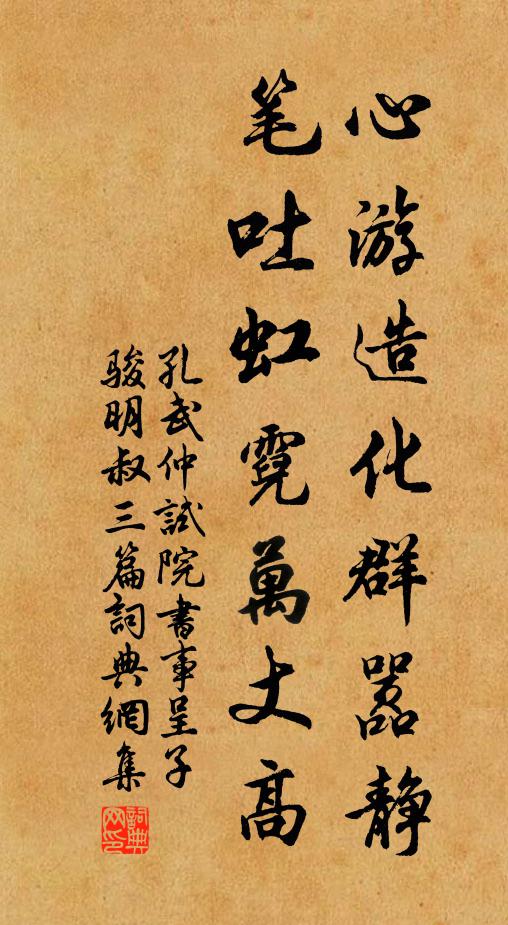 心游造化群嚣静
笔吐虹霓萬丈高
孔武仲試院書事呈子
駿明叔三篇詞典網集
詞典网印